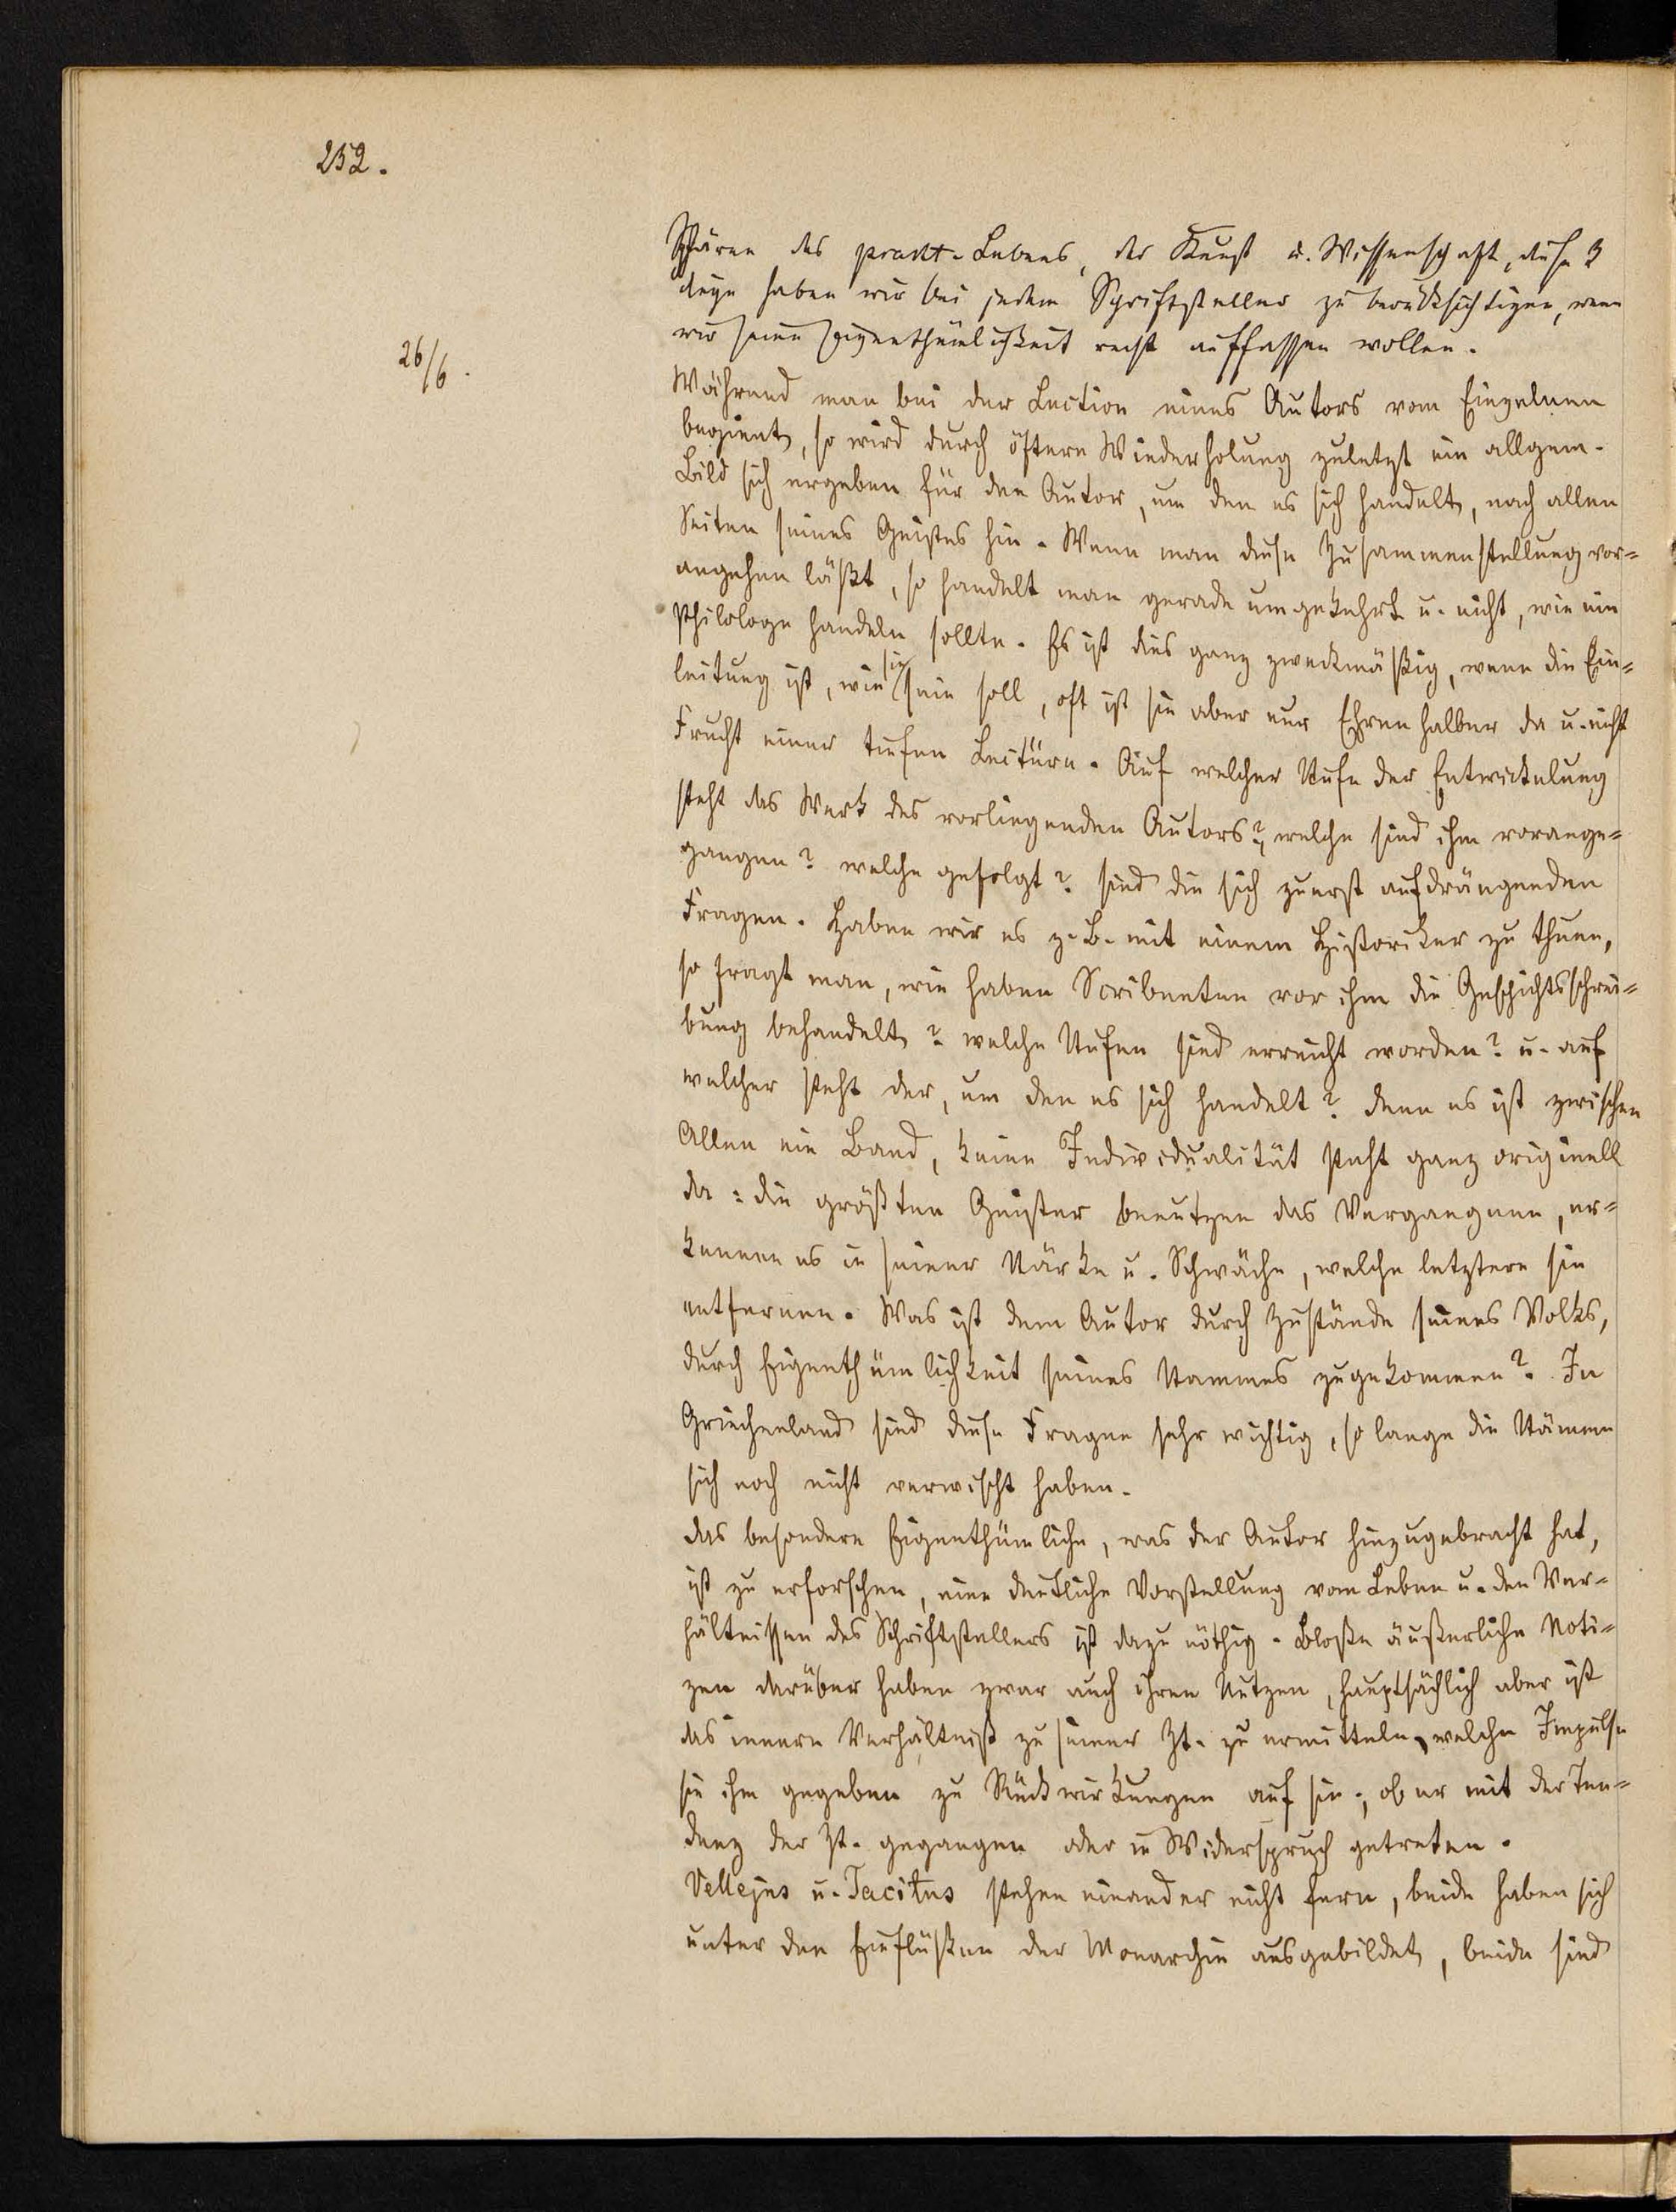 252.
Sphären des pract. Lebens, der Kunst u. Wissenschaft, diese 3
Dinge haben wir bei jedem Schriftsteller zu berücksichtigen, wenn
wir seine Eigenthümlichkeit recht auffassen wollen.
26/6.
Während man bei der Lection eines Autors vom Einzelnen
beginnt, so wird durch öftere Wiederholung zuletzt ein allgem.
Bild sich ergeben für den Autor, um den es sich handelt, nach allen
Seiten seines Geistes hin. Wenn man diese Zusammenstellung vor=
angehen läßt, so handelt man gerade umgekehrt u. nicht, wie ein
Philologe handeln sollte. Es ist dies ganz zweckmäßig, wenn die Ein=
leitung ist, wie sie sein soll, oft ist sie aber nur Ehren halber da u. nicht
Frucht einer tiefen Lectüre. Auf welcher Stufe der Entwickelung
steht das Werk des vorliegenden Autors?, welche sind ihm vorange=
gangen? welche gefolgt? sind die sich zuerst aufdrängenden
Fragen. Haben wir es z. B. mit einem Historiker zu thuen,
so fragt man, wie haben Scribenten vor ihm die Geschichtsschrei=
bung behandelt? welche Stufen sind erreicht worden? u. auf
welcher steht der, um den es sich handelt? denn es ist zwischen
Allen ein Band, keine Individualität steht ganz originell
da: die größten Geister benutzen das Vergangene, er=
kennen es in seiner Stärke u. Schwäche, welche letztere sie
entfernen. Was ist dem Autor durch Zustände seines Volks,
durch Eigenthümlichkeit seines Stammes zugekommen? In
Griechenland sind diese Fragen sehr wichtig, so lange die Stämme
sich noch nicht verwischt haben.
Das besondere Eigenthümliche, was der Autor hinzugebracht hat,
ist zu erforschen, eine deutliche Vorstellung vom Leben u. den Ver=
hältnissen des Schriftstellers ist dazu nöthig. Bloße äußerliche Noti=
zen darüber haben zwar auch ihren Nutzen, hauptsächlich aber ist
das innere Verhältniß zu seiner Zt. zu ermitteln, welche Impulse
sie ihm gegeben zu Rückwirkungen auf sie; ob er mit der Ten=
denz der Zt. gegangen oder in Widerspruch getreten.
Vellejus u. Tacitus stehen einander nicht fern, beide haben sich
unter den Einflüßen der Monarchie ausgebildet, beide sind